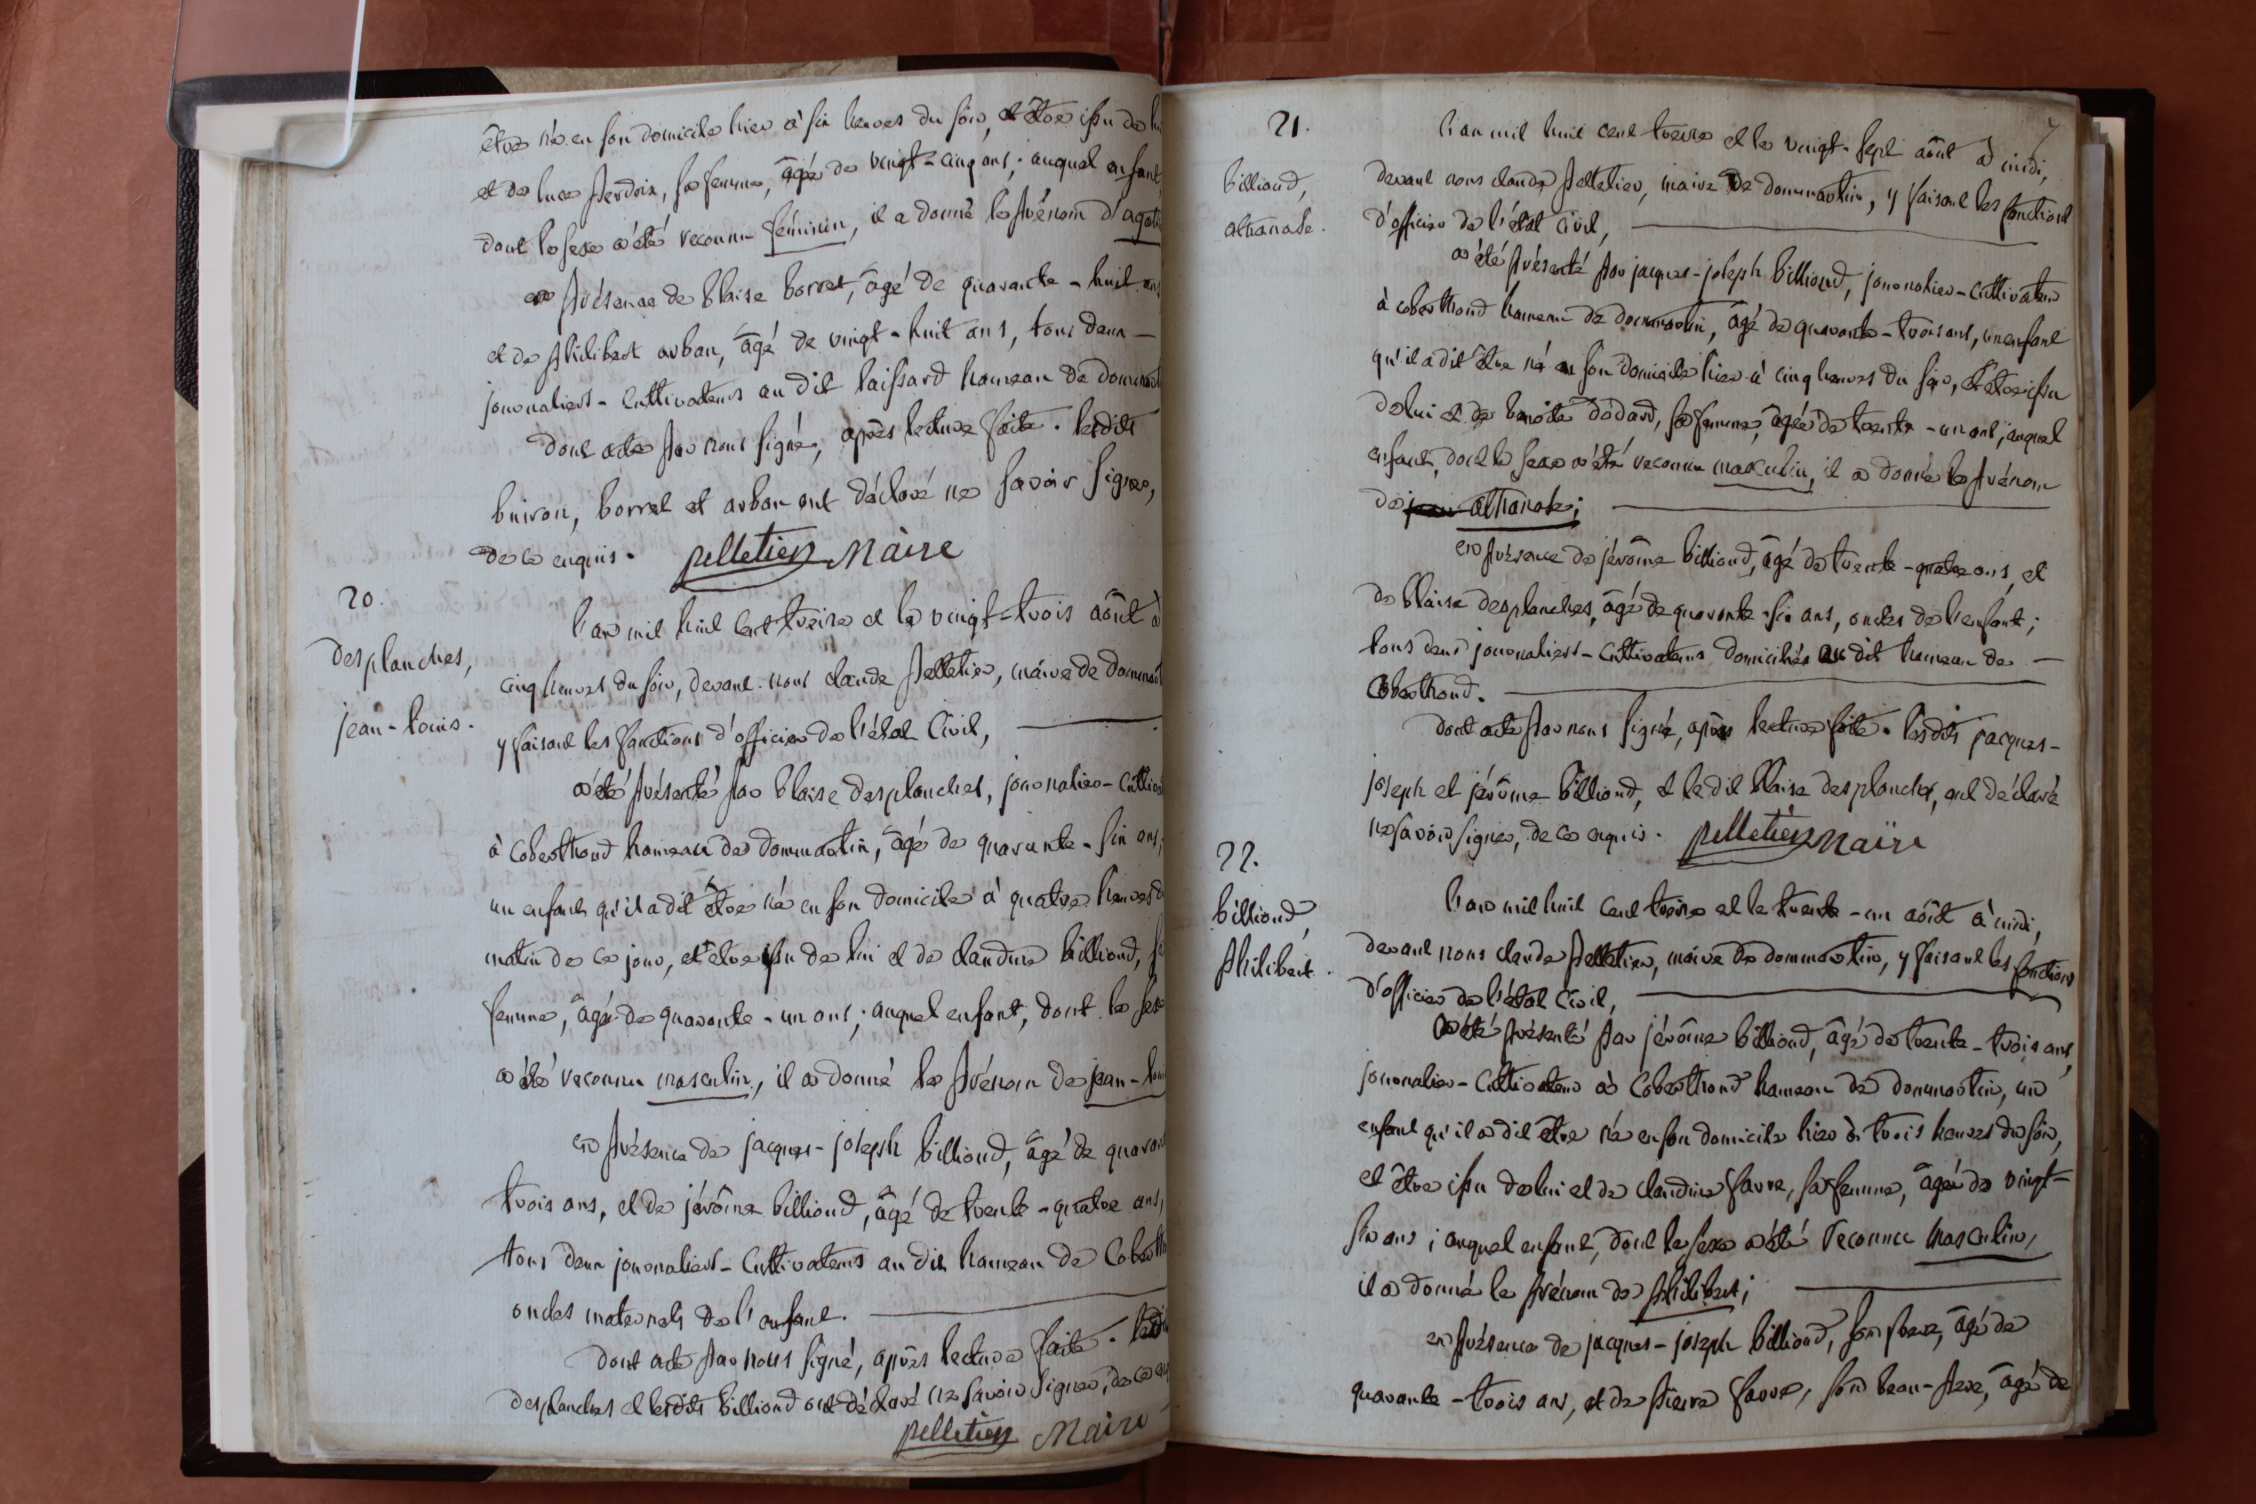 être né en son domicile hier à six heures du soir, et être issu de lui
et de luce perdrix, sa femme, âgée de vingt-cinq ans; auquel enfant,
dont le sexe a été reconnu féminin, il a donné le prénom d'agathe
en présence de blaise borrel, âgé de quarante-huit ans
et de philibert arban, âgé de vingt-huit ans, tous deux
journaliers-cultivateurs au dit laissard hameau de dommart
dont acte par nous signé, après lecture faite. lesdits
buiron, borrel et arban ont déclaré ne savoir signer,
de ce enquis. pelletier Maire
20.
desplanches,
jean-louis.
l'an mil huit cent treize et le vingt-trois août à
cinq heures du soir, devant nous claude pelletier, maire de dommart
y faisant les fonctions d'officier de l'état civil,
a été présenté par blaise desplanches, journalier-cultiva
à coberthoud hameau de dommartin, âgé de quarante-six ans,
un enfant qu'il a dit être né en son domicile à quatre heures d
matin de ce jour, et être issu de lui et de claudine billioud, sa
femme, âgée de quarante-un ans; auquel enfant, dont le sexe
a été reconnu masculin, il a donné le prénom de jean-lou
en présence de jacques-joseph billioud, âgé de quarant
trois ans, et de jérôme billioud, âgé de trente-quatre ans,
tous deux journaliers-cultivateurs au dit hameau de Coberth
oncles maternels de l'enfant.
dont acte par nous signé, après lecture faite. ledit
desplanches et lesdits billioud ont déclaré ne savoir signer, de ce en
pelletier Maire
7
21.
billioud,
athanase.
l'an mil huit cent treize et le vingt-sept août à midi,
devant nous claude pelletier, maire de dommartin, y faisant les fonctions
d'officier de l'état civil,
a été présenté par jacques-joseph billioud, journalier-cultivateur
à coberthoud hameau de dommartin, âgé de quarante-trois ans, un enfant
qu'il a dit être né en son domicile hier à cinq heures du soir, et être issu
de lui et de benoite dodard, sa femme, âgée de trente-un ans; auquel
enfant, dont le sexe a été reconnu masculin, il a donné le prénom
de jean athanase;
en présence de jérôme billioud, âgé de trente-quatre ans, et
de blaise desplanches, âgé de quarante-six ans, oncles de l'enfant;
tous deux journaliers-cultivateurs domiciliés au dit hameau de
Coberthoud.
dont acte par nous signé, après lecture faite. lesdits jacques-
joseph et jérôme billioud, et le dit blaise desplanches, ont déclaré
ne savoir signer, de ce enquis. pelletier Maire
22.
billioud,
philibert.
l'an mil huit cent treize et le trente-un août à midi,
devant nous claude pelletier, maire de dommartin, y faisant les fonctions
d'officier de l'état civil,
a été présenté par jérôme billioud, âgé de trente-trois ans,
journalier-cultivateur à Coberthoud hameau de dommartin, un
enfant qu'il a dit être né en son domicile hier à trois heures du soir,
et être issu de lui et de claudine favre, sa femme, âgée de vingt-
six ans; auquel enfant, dont le sexe a été reconnu masculin,
il a donné le prénom de philibert;
en présence de jacques-joseph billioud, son frère, âgé de
quarante-trois ans, et de pierre favre, son beau-père, âgé de